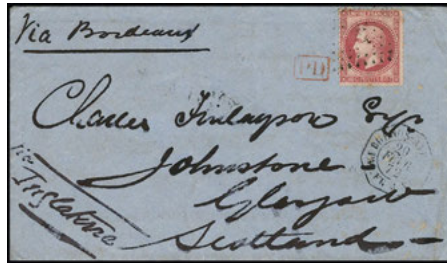 Via Bordeaux
PD
Charles Finlayson Esqr
Johnstone
Glasgow
Scotland
via Inglaterra